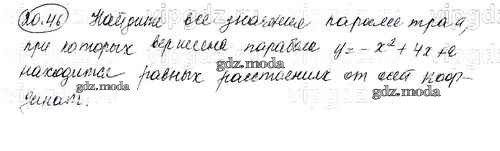 20.46 Найдите все значения параметра a,
при которых вершина параболы y = -x² + 4x + a
находится равных расстояниях от осей коор-
динат.
gdz.moda
gdz.moda
gdz.moda
gdz.moda